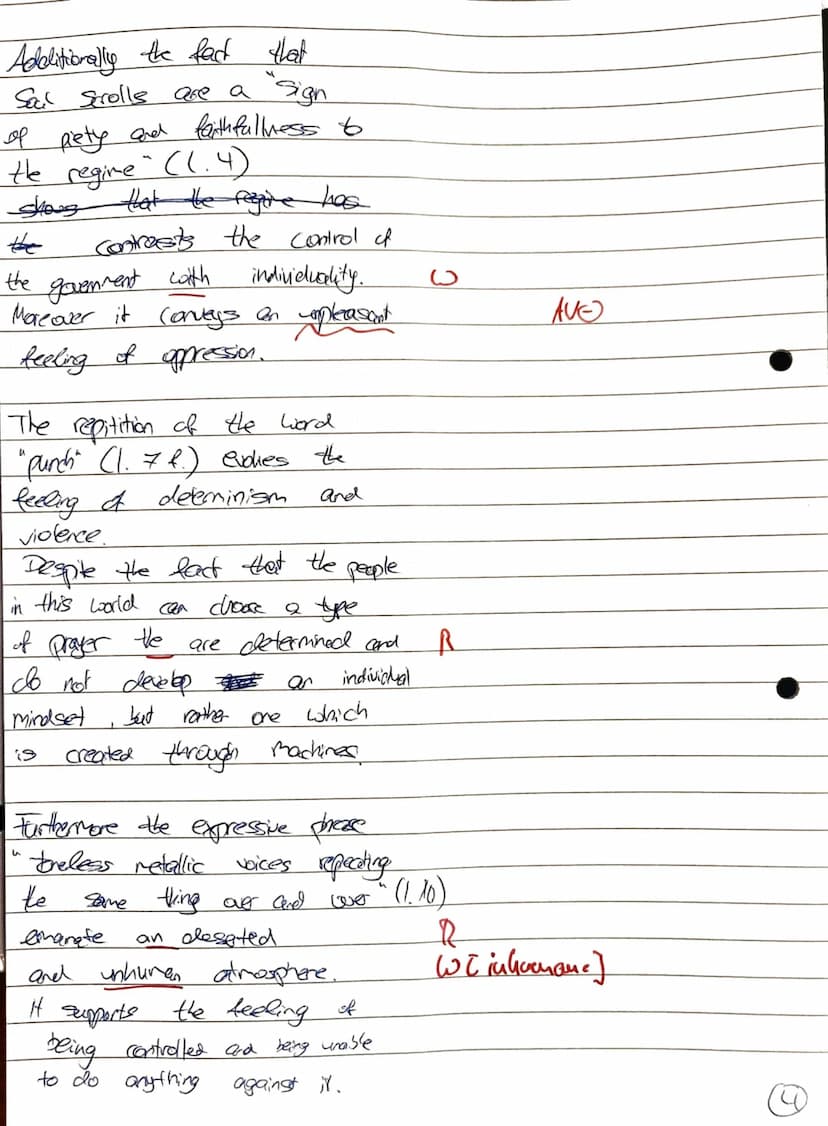 Additionally the fact that
Soul Scrolls are a "sign
of piety and faithfullness to
the regime" (l. 4)
shows that the regime has
the contrasts the control of
the goverment with individuality. W
Moreover it conveys an unpleasant AV(-)
feeling of oppression.
The repitition of the word
"punch" (l. 7 f.) evokes the
feeling of determinism and
violence.
Despite the fact that the people
in this world can choose a type
of prayer the are determined and R
do not develop an individual
mindset, but rather one which
is created through machines.
Furthermore the expressive phrase
"toneless metallic voices repeating
the same thing over and over" (l. 10)
emanate an deserted R
and unhuman atmosphere. W [inhumane]
It supports the feeling of
being controlled and being unable
to do anything against it.
4